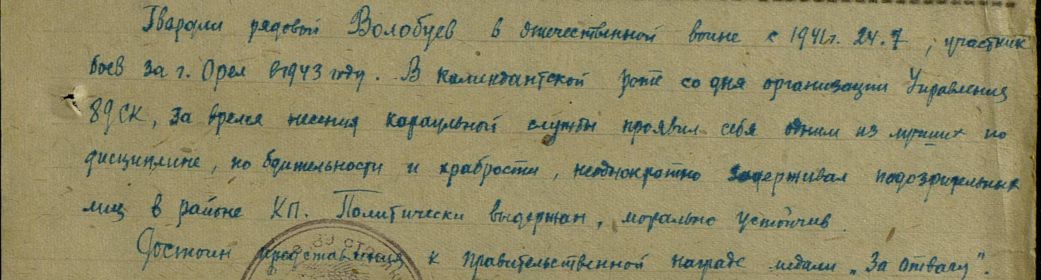 Гвардии рядовой Волобуев в отечественной воине с 1941г. 24.7, участник
боев за г. Орел в 1943 году. В комендантской роте со дня организации Управления
89 СК, за время несения караульной службы проявил себя одним из лучших по
дисциплине, по бдительности и храбрости, неоднократно задерживал подозрительных
лиц в районе КП. Политически выдержан, морально устойчив.
Достоин представления к правительственной награде медали „За отвагу"